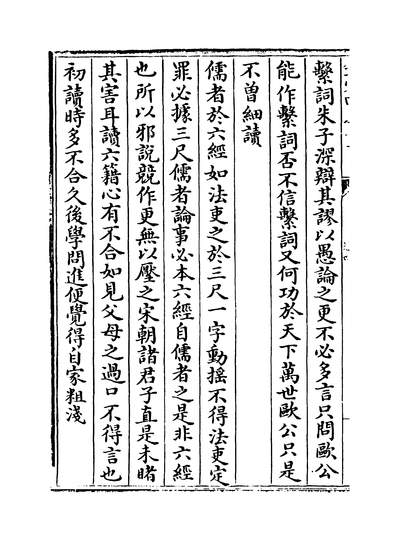 繫詞朱子深辯其謬以愚論之更不必多言只問歐公
能作繫詞否不信繫詞又何功於天下萬世歐公只是
不曽細讀
儒者於六經如法吏之於三尺一字動摇不得法吏定
罪必據三尺儒者論事必本六經自儒者之是非六經
也所以邪説競作更無以壓之宋朝諸君子直是未睹
其害耳讀六籍心有不合如見父母之過口不得言也
初讀時多不合久後學問進便覺得自家粗淺